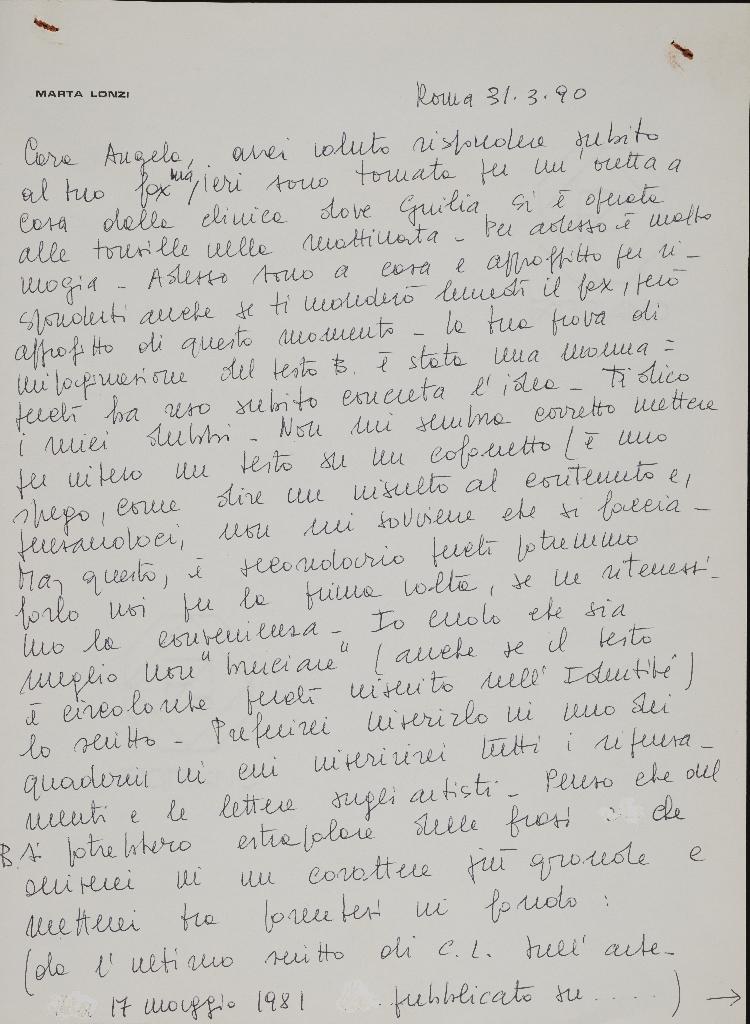 MARTA LONZI
Roma 31.3.90
Cara Angela, avrei voluto rispondere subito
al tuo fax ma, ieri sono tornata per un' oretta a
casa dalla clinica dove Giulia si è operata
alle tonsille nella mattinata - Per adesso è molto
mogia - Adesso sono a casa e approfitto per ri-
sponderti anche se ti manderò lunedì il fax, però
approfitto di questo momento - la tua prova di
impaginazione del testo B. è stata una manna =
perché ha reso subito concreta l'idea - Ti dico
i miei dubbi - Non mi sembra corretto mettere
per intero un testo su un cofanetto (è uno
spreco, come dire un insulto al contenuto e,
pensandoci, non mi sovviene che si faccia -
Ma, questo, è secondario perché potremmo
farlo noi per la prima volta, se ne ritenessi-
mo la convenienza - Io credo che sia
meglio non "bruciare" (anche se il testo
è circolante perché inserito nell' Identité)
lo scritto - Preferirei inserirlo in uno dei
quaderni in cui inserirei tutti i ripensa-
menti e le lettere sugli artisti - Penso che del
B. si potrebbero estrapolare delle frasi che
scriverei in un carattere più grande e
metterei tra parentesi in fondo :
(da l'ultimo scritto di C. L. sull' arte -
17 maggio 1981 pubblicato su . . . . . ) →